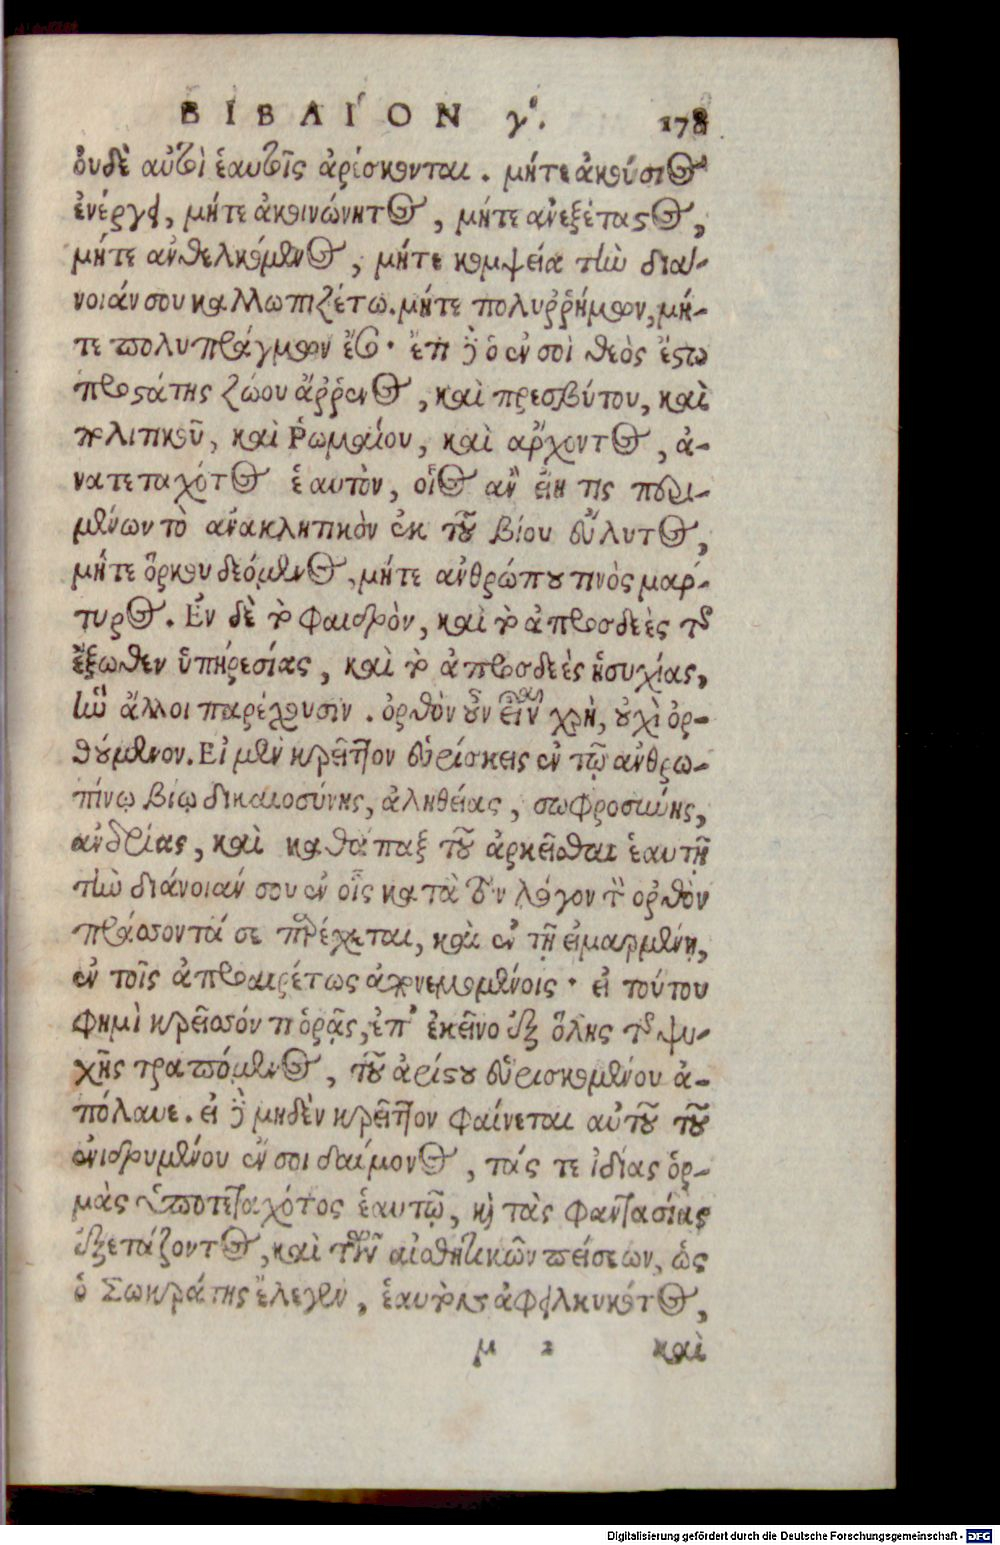 ΒΙΒΛΙΌΝ γʹ. 178
οὐδὲ αὐτοὶ ἑαυτοῖς ἀρέσκονται. μήτε ἀκούσιος
ἐνέργει, μήτε ἀκοινώνητος, μήτε ἀνεξέταστος,
μήτε ἀνθελκόμενος, μήτε κομψεία τὴν διά-
νοιάν σου καλλωπιζέτω. μήτε πολυῤῥήμων, μή-
τε πολυπράγμων ἔσο· ἔτι δὲ ὁ ἐν σοὶ θεὸς ἔστω
προστάτης ζώου ἄῤῥενος, καὶ πρεσβύτου, καὶ
πολιτικοῦ, καὶ Ῥωμαίου, καὶ ἄρχοντος, ἀ-
νατεταχότος ἑαυτὸν, οἷος ἂν εἴη τις περι-
μένων τὸ ἀνακλητικὸν ἐκ τοῦ βίου εὔλυτος,
μήτε ὅρκου δεόμενος, μήτε ἀνθρώπου τινὸς μάρ-
τυρος. Ἐν δὲ τὸ φαιδρὸν, καὶ τὸ ἀπροσδεὲς τῆς
ἔξωθεν ὑπηρεσίας, καὶ τὸ ἀπροσδεὲς ἡσυχίας,
ἣν ἄλλοι παρέχουσιν. ὀρθὸν οὖν εἶναι χρὴ, οὐχὶ ὀρ-
θούμενον. Εἰ μὲν κρεῖττον εὑρίσκεις ἐν τῷ ἀνθρω-
πίνῳ βίῳ δικαιοσύνης, ἀληθείας, σωφροσύνης,
ἀνδρίας, καὶ καθάπαξ τοῦ ἀρκεῖσθαι ἑαυτῇ
τὴν διάνοιάν σου ἐν οἷς κατὰ τὸν λόγον τὸν ὀρθὸν
πράσσοντά σε παρέχεται, καὶ ἐν τῇ εἱμαρμένῃ,
ἐν τοῖς ἀπροαιρέτως ἀπονεμομένοις· εἰ τούτου
φημὶ κρεῖσσόν τι ὁρᾷς, ἐπ' ἐκεῖνο ἐξ ὅλης τῆς ψυ-
χῆς τραπόμενος, τοῦ ἀρίστου εὑρισκομένου ἀ-
πόλαυε. εἰ δὲ μηδὲν κρεῖττον φαίνεται αὐτοῦ τοῦ
ἐνιδρυμένου ἐν σοι δαίμονος, τάς τε ἰδίας ὁρ-
μὰς ὑποτεταχότος ἑαυτῷ, καὶ τὰς φαντασίας
ἐξετάζοντος, καὶ τῶν αἰσθητικῶν πείσεων, ὡς
ὁ Σωκράτης ἔλεγεν, ἑαυτὸν ἀφειλκυκότος,
μ 2 καὶ
Digitalisierung gefördert durch die Deutsche Forschungsgemeinschaft - DFG